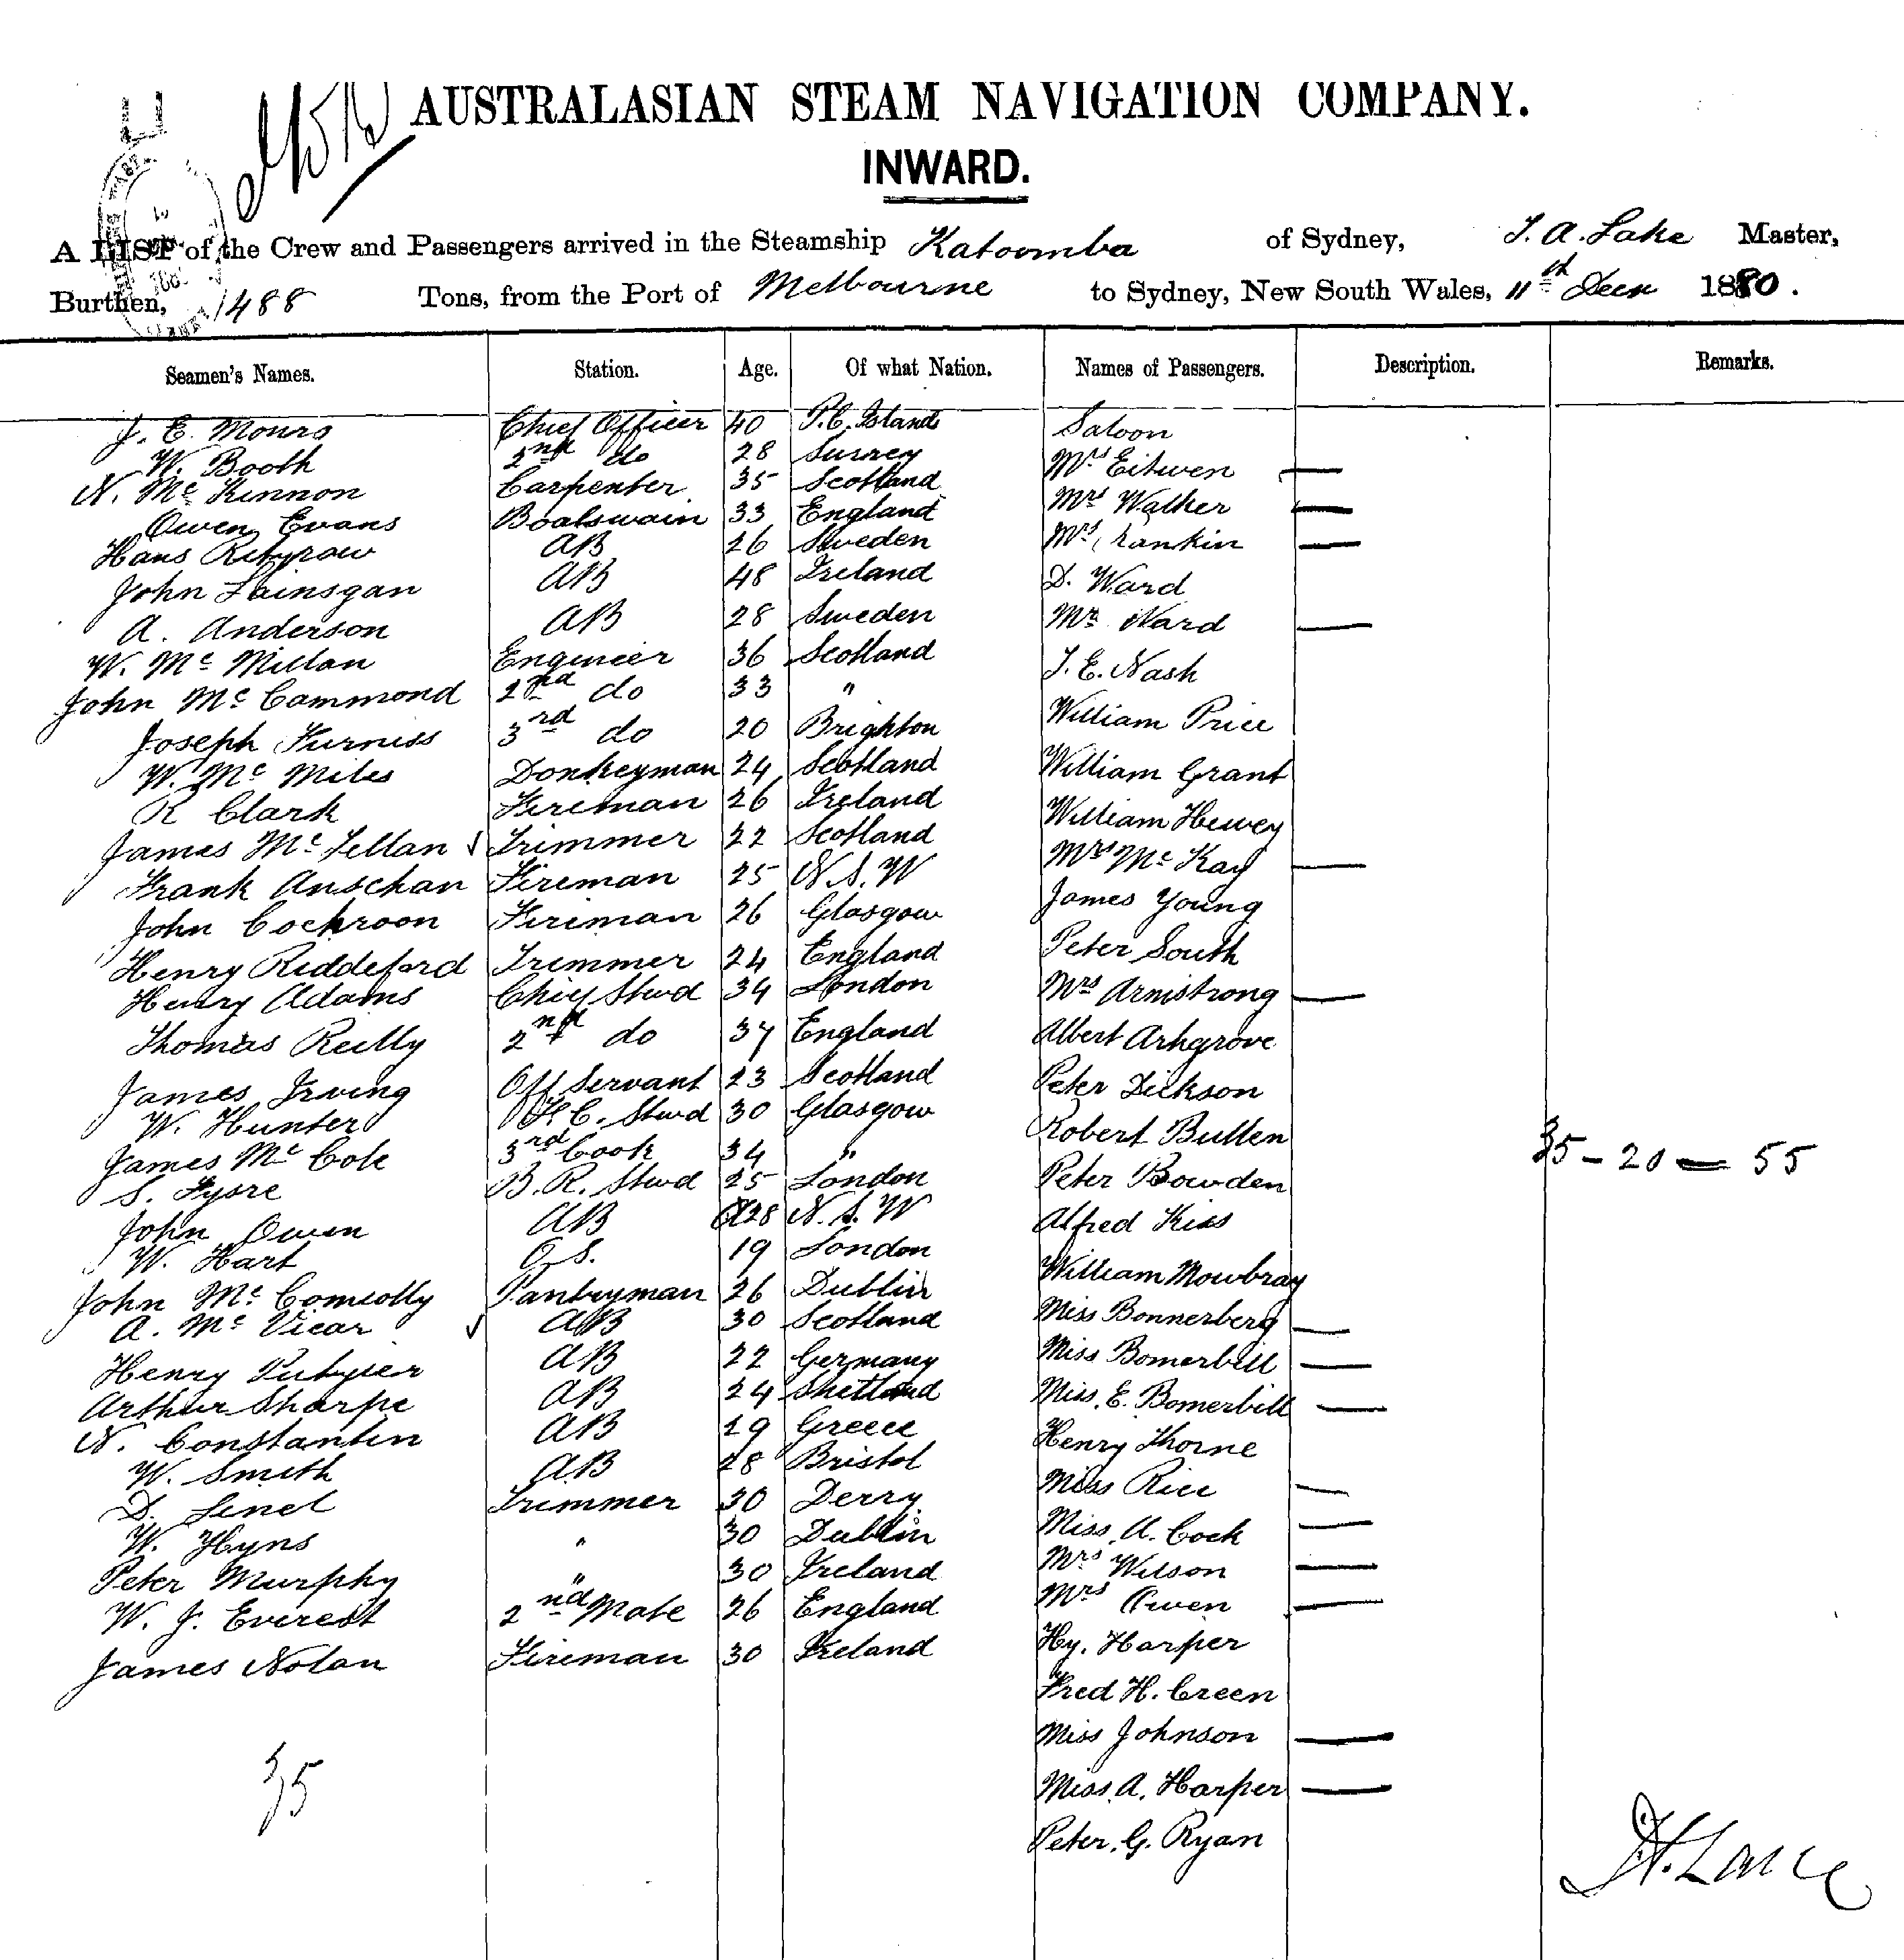 AUSTRALASIAN STEAM NAVIGATION COMPANY.
INWARD.
A LIST of the Crew and Passengers arrived in the Steamship Katoomba of Sydney, J. A. Lake Master,
Burthen, 1488 Tons, from the Port of Melbourne to Sydney, New South Wales, 11th Decr 1880.
Seamen's Names. Station. Age. Of what Nation. Names of Passengers. Description. Remarks.
J. E. Mours Chief Officer 40 P.E. Island Saloon
W. Booth 2nd do 28 Surrey Mrs Eitwen —
N. Mc Kinnon Carpenter 35 Scotland Mrs Walker —
Owen Evans Boatswain 33 England Mrs Rankin —
Hans AB 26 Sweden D. Ward
John Lainsgan AB 48 Ireland Mr Ward —
A. Anderson AB 28 Sweden J. E. Nash
W. Mc Millan Engineer 36 Scotland William Price
John Mc Cammond 2nd do 33 " William Grant
Joseph Furniss 3rd do 20 Brighton William Huvey
W. Mc Miles Donkeyman 24 Scotland Mrs Mc Kay —
R Clark Fireman 26 Ireland James Young
James Mc Lellan ✓ Trimmer 22 Scotland Peter South
Frank Anschan Fireman 25 N.S.W Mrs Armstrong —
John Cochroon Fireman 26 Glasgow Albert Arhgrove
Henry Riddeford Trimmer 24 England Peter Dickson
Henry Adams Chief Stwd 34 London Robert Bullen
Thomas Reilly 2nd do 37 England Peter Bowden
James Irving Off Servant 23 Scotland Alfred Kiss
W. Hunter F.C. Stwd 30 Glasgow William Mowbray
James Mc Cole 3rd Cook 34 " Miss Bonnerberg —
S. Fysre B.R. Stwd 25 London Miss Bomerbill —
John Owen AB 28 N.S.W Miss E. Bomerbill —
W. Hart O.S. 19 London Henry Thorne
John Mc Comiolly Pantryman 26 Dublin Miss Rice —
A. Mc Vicar ✓ AB 30 Scotland Miss A. Cock —
Henry AB 22 Germany Mrs Wilson —
Arthur Sharpe AB 24 Shetland Mrs Owen —
N. Constantin AB 29 Greece Hy. Harper
W. Smith AB 28 Bristol Fred H. Creen
D. Linel Trimmer 30 Derry Miss Johnson —
W. Hyns " 30 Dublin Miss A. Harper —
Peter Murphy " 30 Ireland Peter. G. Ryan
W. J. Everest 2nd Mate 26 England
James Nolan Fireman 30 Ireland
35 – 20 — 55
35